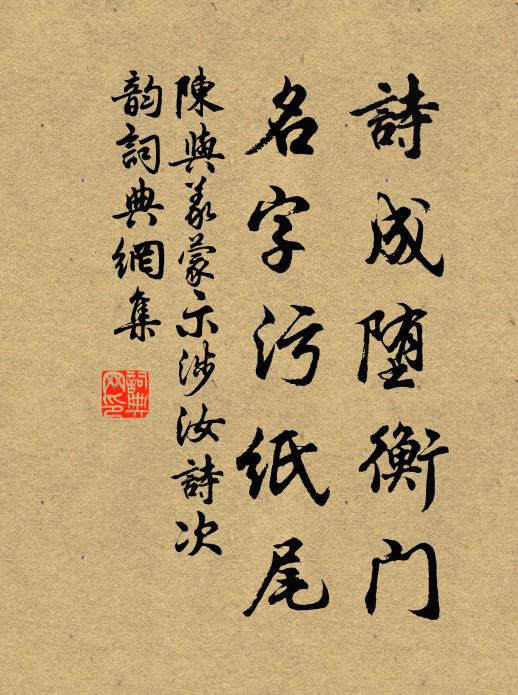 詩成堕衡门
名字污纸尾
陳與義蒙示涉汝詩次
韵詞典網集
詞典
网印